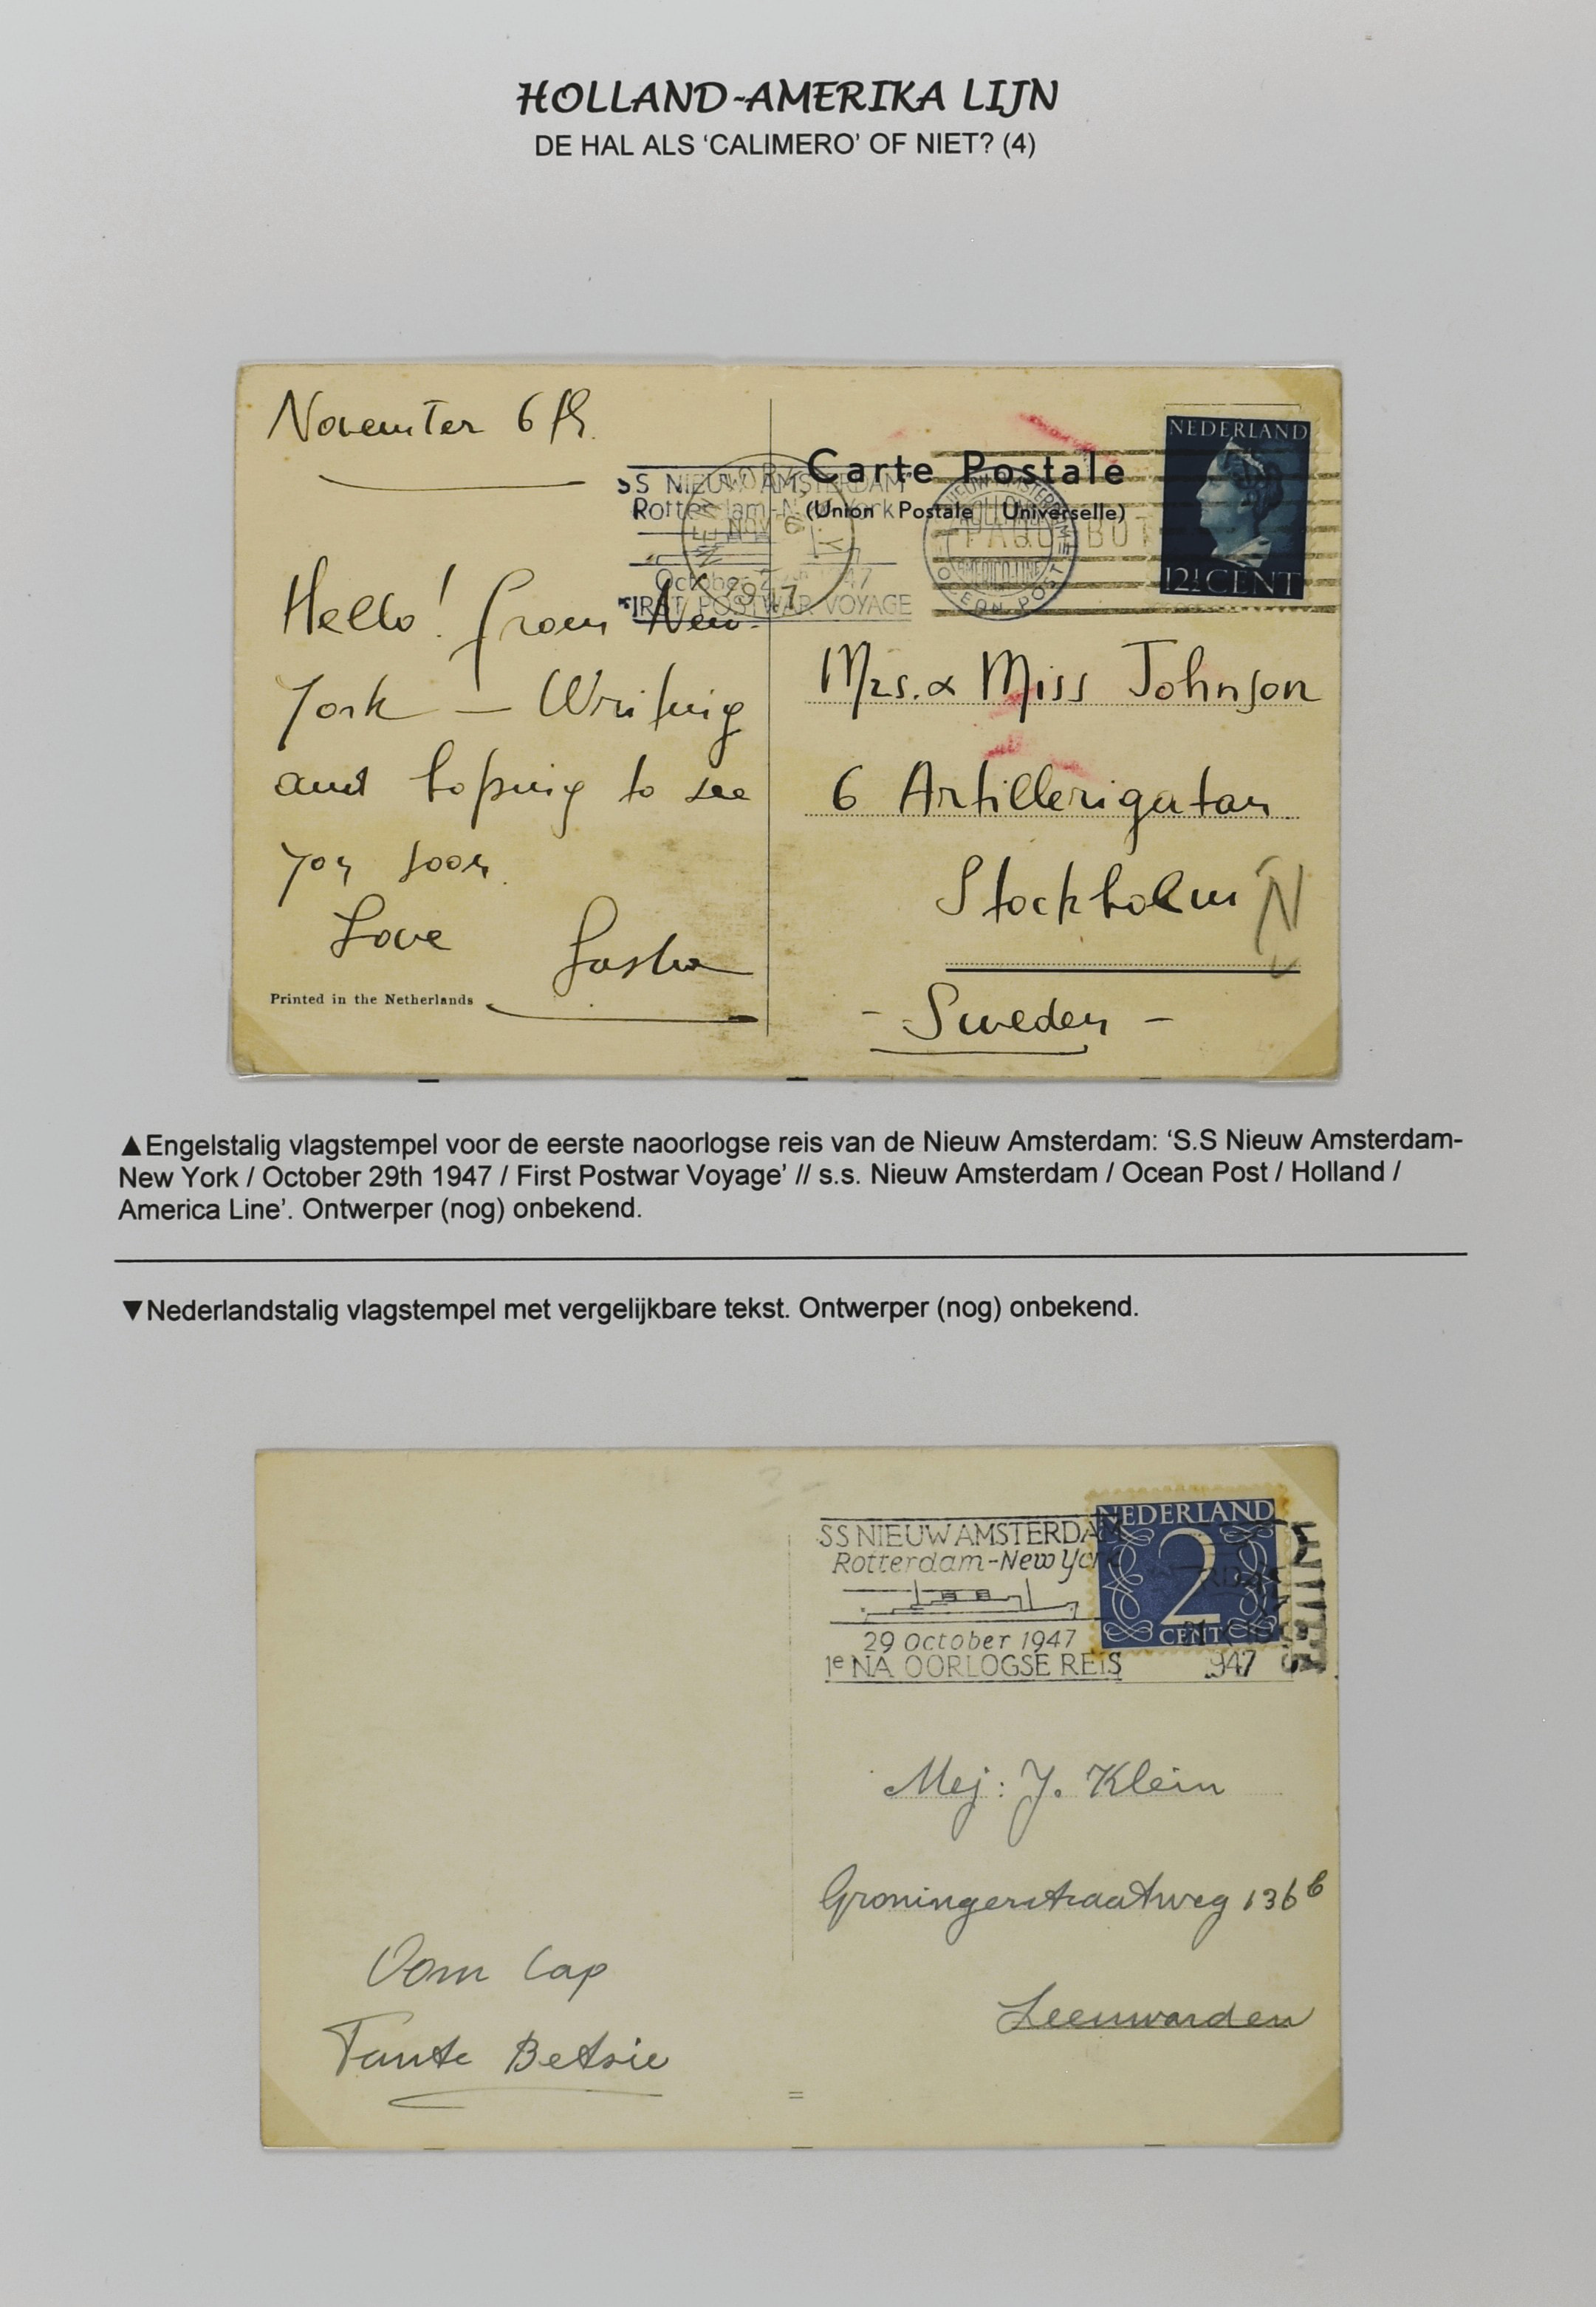 HOLLAND-AMERIKA LIJN
DE HAL ALS ‘CALIMERO’ OF NIET? (4)
November 6th.
Hello! from New-
York — Writing
and hoping to see
you soon.
Love
Sasha
Printed in the Netherlands
SS NIEUW AMSTERDAM
Rotterdam-New York
October 29th 1947
FIRST POSTWAR VOYAGE
NEW YORK
NOV 6
N.Y.
1947
Carte Postale
(Union Postale Universelle)
NIEUW AMSTERDAM
HOLLAND
AMERICA LINE
OCEAN POST
PAQUEBOT
NEDERLAND
12½ CENT
Mrs. & Miss Johnson
6 Artillerigatan
Stockholm N
- Sweden -
▲Engelstalig vlagstempel voor de eerste naoorlogse reis van de Nieuw Amsterdam: ‘S.S Nieuw Amsterdam-
New York / October 29th 1947 / First Postwar Voyage’ // s.s. Nieuw Amsterdam / Ocean Post / Holland /
America Line’. Ontwerper (nog) onbekend.
▼Nederlandstalig vlagstempel met vergelijkbare tekst. Ontwerper (nog) onbekend.
SS NIEUW AMSTERDAM
Rotterdam-New York
29 October 1947
1e NA OORLOGSE REIS
NEDERLAND
2
CENT
1947
Mej: J. Klein
Groningerstraatweg 136b
Leeuwarden
Oom Cap
Tante Betsie
=